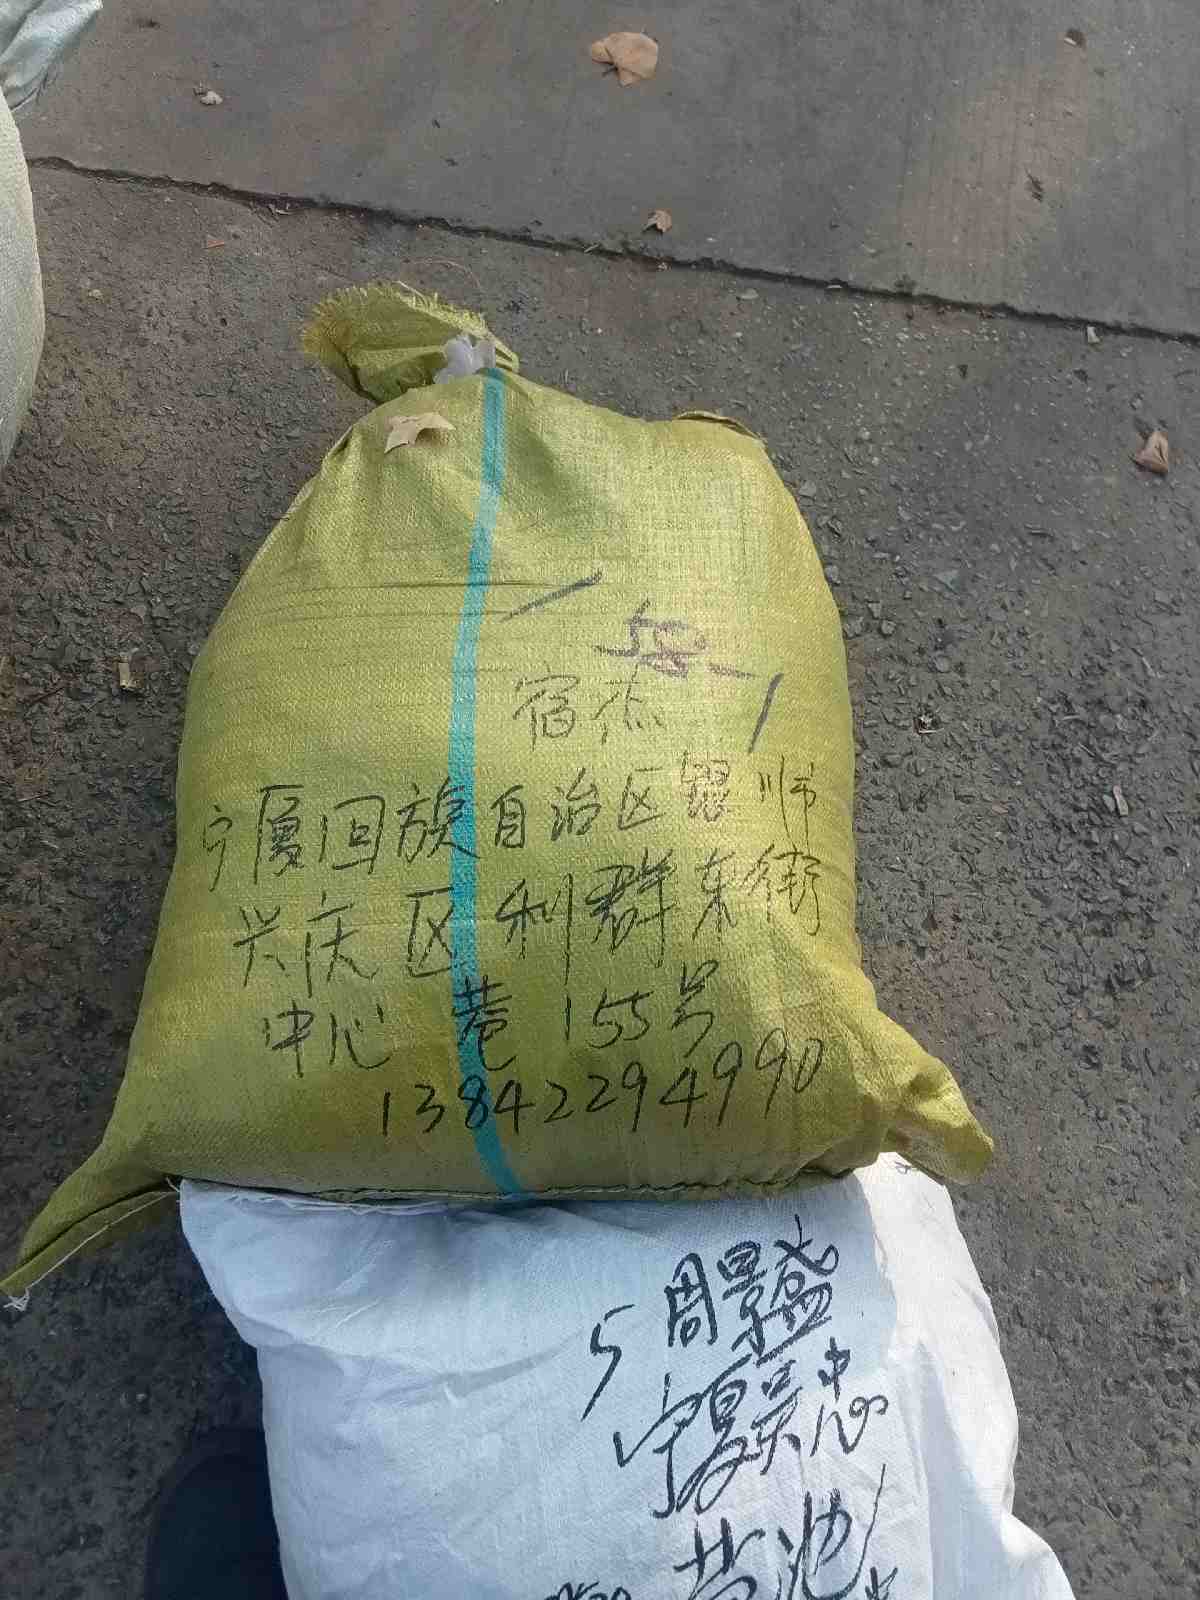 宿杰
宁夏回族自治区银川市
兴庆区利群东街
中心巷155号
13842294990
5 周景盛
宁夏吴忠